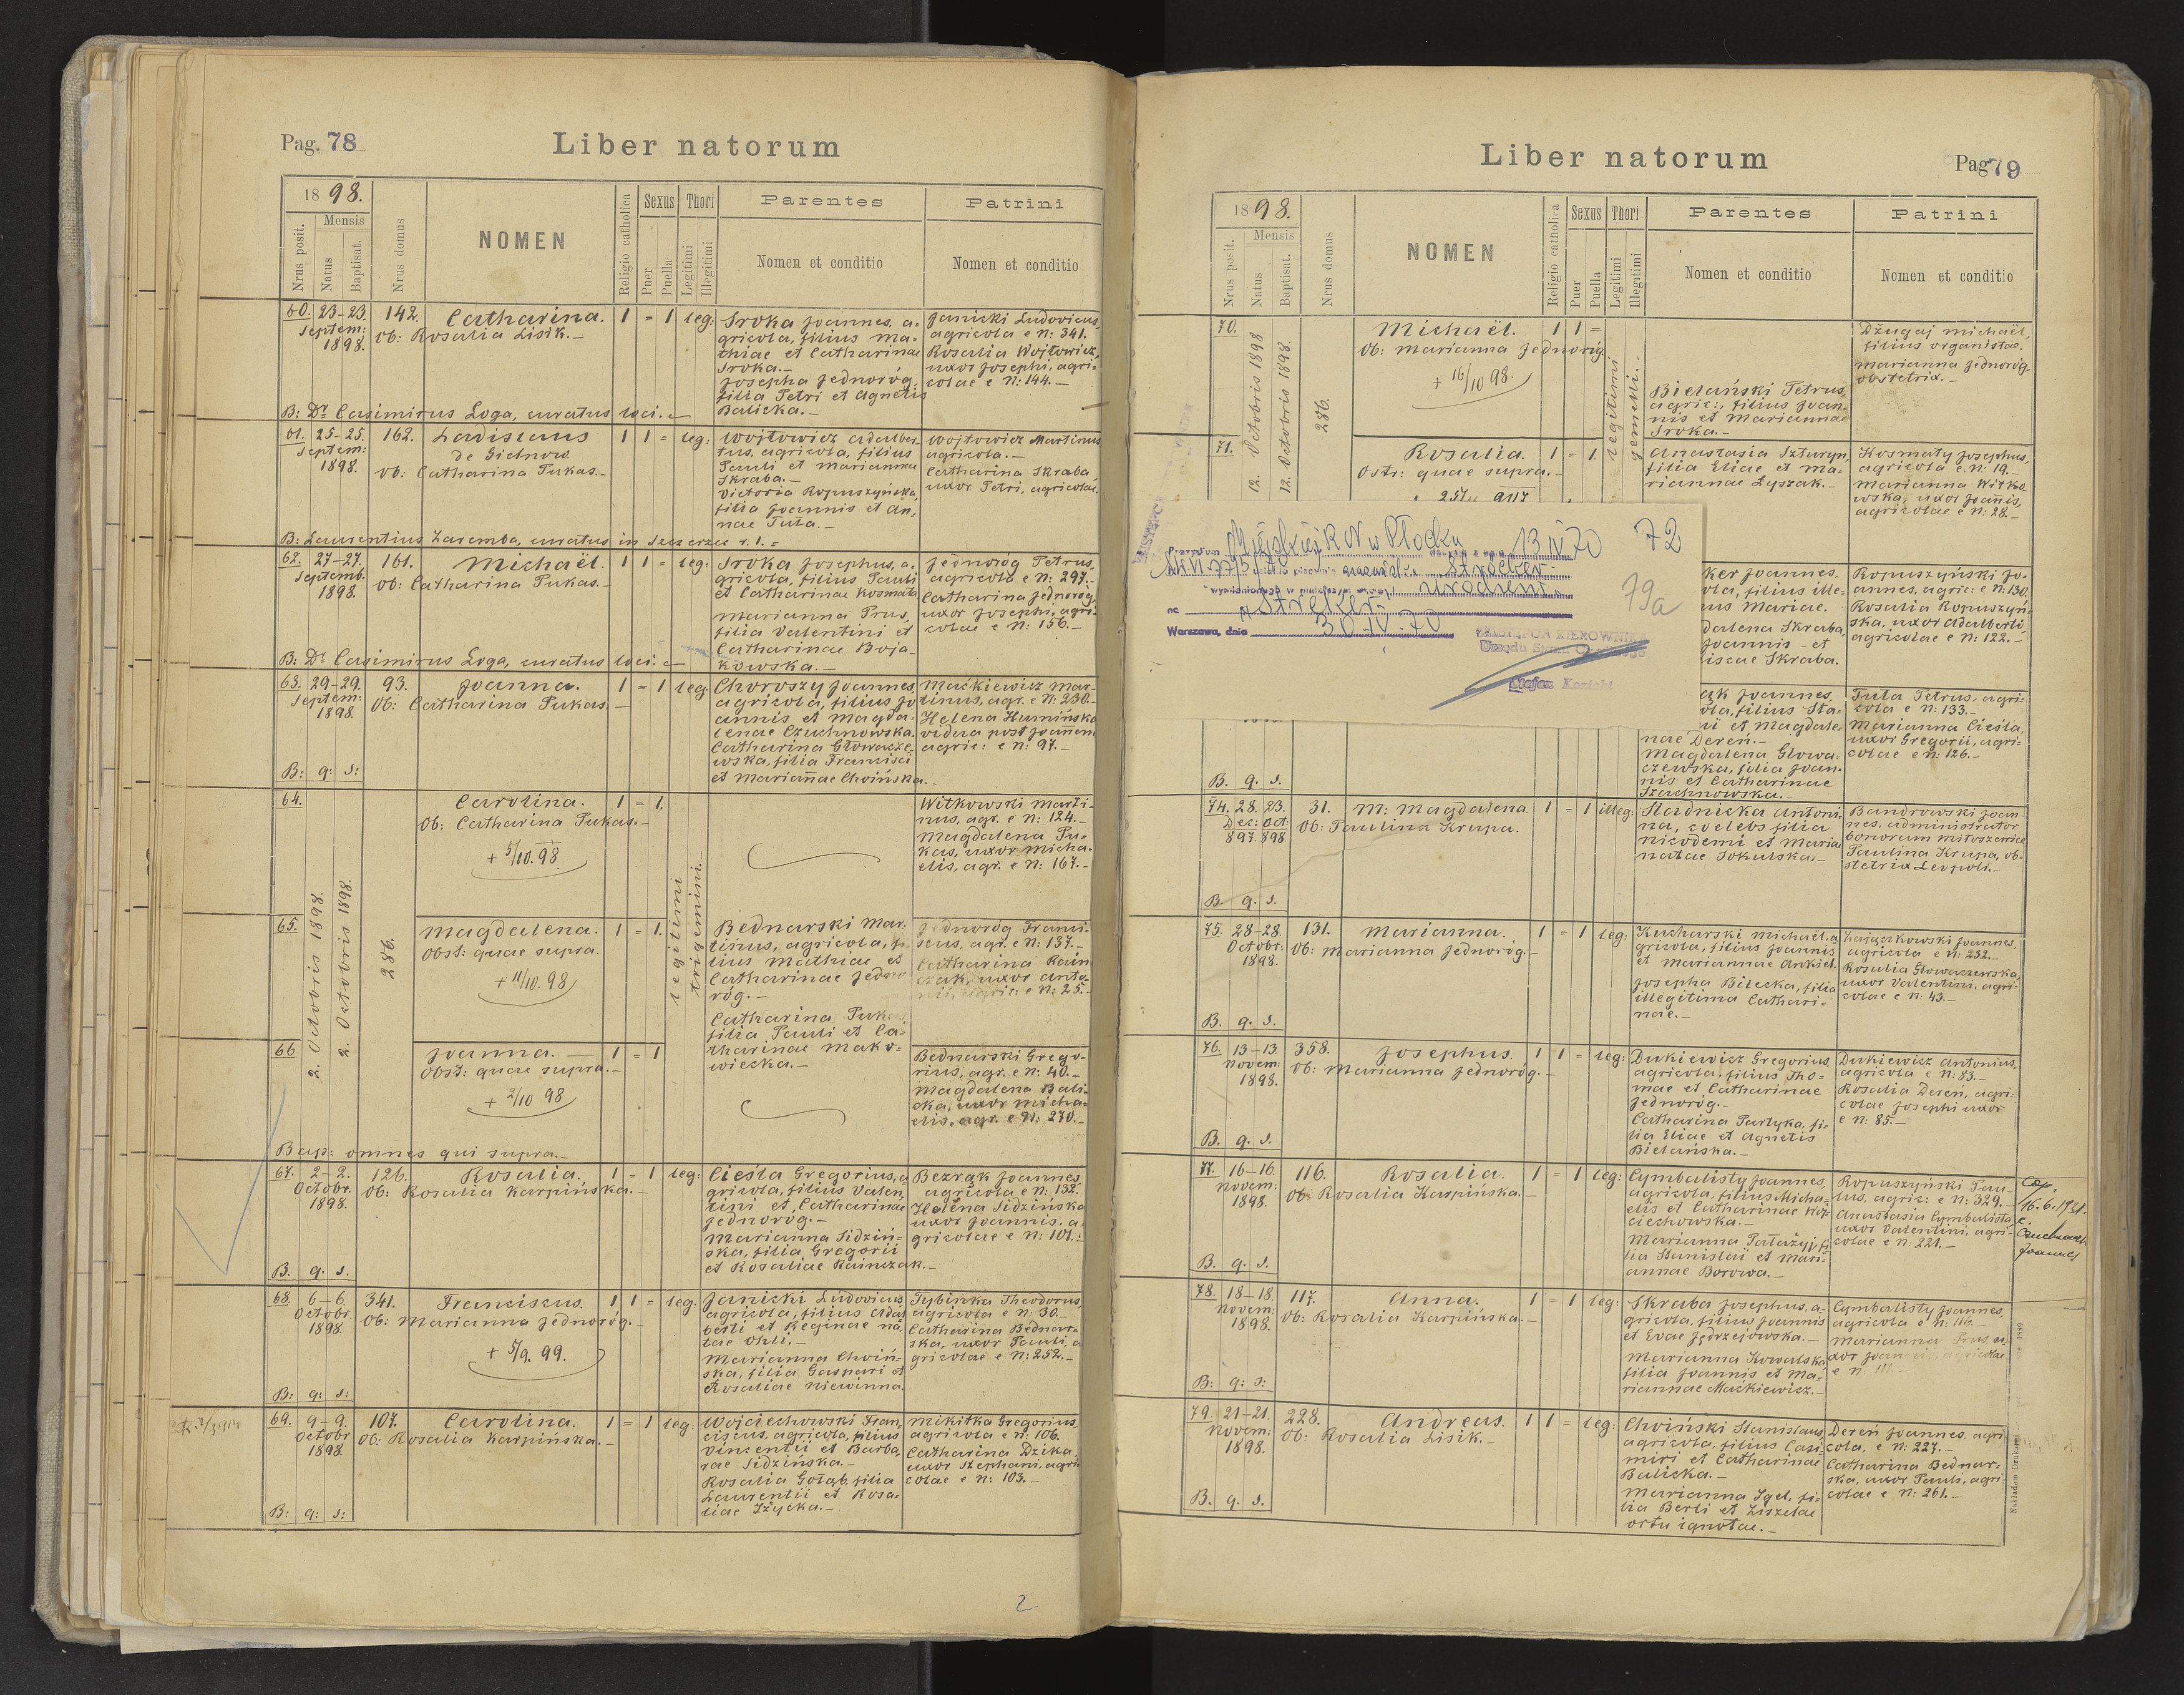 Pag. 78
Liber natorum
1898.
Nrus posit.
Mensis
Natus
Baptisat.
Nrus domus
NOMEN
Religio catholica
Sexus
Puer
Puella
Thori
Legitimi
Illegitimi
Parentes
Nomen et conditio
Patrini
Nomen et conditio
60. 23-23. Septem: 1898. 142.
Catharina.
Ob: Rosalia Lisik.-
1 = 1 leg:
Sroka Joannes, a-
gricola, filius Ma-
thiae et Catharinae
Sroka.-
Josepha Jednoróg,
filia Petri et Agnetis
Balicka.-
Janicki Ludovicus,
agricola e N: 341.
Rosalia Wojtowicz,
uxor Josephi, agri-
colae e N: 144.-
B: Dr Casimirus Loga, curatus loci.
61. 25-25. Septem: 1898. 162.
Ladislaus
de Gielnow.
Ob: Catharina Pukas.-
1 1 = leg:
Wojtowicz Adalber-
tus, agricola, filius
Pauli et Marianna
Skraba.-
Victoria Ropuszyńska,
filia Joannis et An-
nae Tuta.-
Wojtowicz Martinus
agricola.-
Catharina Skraba
uxor Petri, agricolae.
B: Laurentius Zaremba, curatus in Szczerzec r. l. =
62. 27-27. Septemb. 1898. 161.
Michaël.
Ob: Catharina Pukas.-
1 1 = leg:
Sroka Josephus, a-
gricola, filius Pauli
et Catharinae Kosmata
Marianna Prus,
filia Valentini et
Catharinae Boja-
kowska.-
Jednoróg Petrus,
agricola e N: 297.-
Catharina Jednoróg,
uxor Josephi, agri-
colae e N: 156.-
B: Dr Casimirus Loga, curatus loci.
63. 29-29. Septem: 1898. 93.
Joanna.
Ob: Catharina Pukas.-
1 = 1 leg:
Choroszy Joannes,
agricola, filius Jo
annis et Magda-
lenae Czuchnowska.
Catharina Głowacze-
wska, filia Francisci
et Mariannae Chwińska.-
Maćkiewicz Mar-
tinus, agr. e N: 230.-
Helena Humińska
vidua post Joannem
agric: e N: 97.-
B: q: s:
64.
Carolina.
Ob: Catharina Pukas.-
+ 5/10. 98
1 = 1.
Witkowski Marti-
nus, agr. e N: 124.-
Magdalena Pu-
kas, uxor Micha-
elis, agr. e N: 167.-
2. Octobris 1898.
2. Octobris 1898.
286.
legitimi
trigemini.-
65.
Magdalena.
Obst: quae supra.
+ 11/10. 98
1 = 1.
Bednarski Mar-
tinus, agricola, fi-
lius Mathiae et
Catharinae Jedno-
róg.-
Catharina Pukas,
filia Pauli et Ca-
tharinae Mako-
wiecka.-
Jednoróg Franci-
scus, agr. e N: 137.-
Catharina Rain
czak, uxor Anto-
nii, agric: e N: 25.-
66
Joanna.
Obst: quae supra.-
+ 2/10 98
1 = 1
Bednarski Grego-
rius, agr. e N: 40.-
Magdalena Bali-
cka, uxor Micha-
elis, agr. e N: 270.-
Bap: omnes qui supra.-
67. 2-2. Octobr. 1898. 126.
Rosalia.
Ob: Rosalia Karpińska.-
1 = 1 leg:
Cieśla Gregorius, a
gricola, filius Valen
tini et Catharinae
Jednoróg.-
Marianna Sidziń-
ska, filia Gregorii
et Rosaliae Rainczak.-
Bezrąk Joannes,
agricola e N: 132.
Helena Sidzinska
uxor Joannis, a
gricolae e N: 101.-
B. q. s.
68. 6-6. Octobr 1898. 341.
Franciscus.
Ob: Marianna Jednoróg.-
+ 5/9. 99.
1 1 = leg:
Janicki Ludovicus
agricola, filius Adal
berti et Reginae na
tae Ohli.-
Marianna Chwiń-
ska, filia Gaspari et
Rosaliae Niewinna.
Tybinka Theodorus,
agricola e N: 30.-
Catharina Bednar-
ska, uxor Pauli, a
gricolae e N: 252.-
B: q: s:
69. 9-9. Octobr 1898 107.
Carolina.
Ob: Rosalia Karpińska.-
1 = 1 leg:
Wojciechowski Fran
ciscus, agricola, filius
Vincentii et Barba
rae Sidzińska.-
Rosalia Gołąb, filia
Laurentii et Rosa-
liae Iżycka.-
Mikitka Gregorius,
agricola e N: 106.
Catharina Dzika,
uxor Stephani, agri
colae e N: 103.-
B: q: s:
2
Liber natorum
Pag. 79
1898.
Nrus posit.
Mensis
Natus
Baptisat.
Nrus domus
NOMEN
Religio catholica
Sexus
Puer
Puella
Thori
Legitimi
Illegitimi
Parentes
Nomen et conditio
Patrini
Nomen et conditio
70.
12. Octobris 1898
12. Octobris 1898.
286.
Michaël.
Ob: Marianna Jednoróg.
+ 16/10 98.
1 1 =
legitimi
gemelli.-
Bielański Petrus,
agric:, filius Joan-
nis et Mariannae
Sroka.-
Dżugaj Michaël,
filius organistae.
Marianna Jednoróg,
obstetrix.-
71.
Rosalia.
Ostr: quae supra.-
1 = 1
Anastasia Szturyn,
filia Eliae et Ma-
riannae Łyszak.-
Kosmaty Josephus,
agricola e N: 19.-
Marianna Witko
wska, uxor Joannis,
agricolae e N: 28.-
Miejskiej RN w Płocku 13 IV 70 72
Strölber
urodzenia
79a
na Streker
Warszawa, dnia 30.IV.70
ZASTĘPCA KIEROWNIKA
Urzędu Stanu Cywilnego
Stefan Kozicki
ker Joannes,
ola, filius ille-
us Mariae.
dalena Skraba,
Joannis et
iscae Skraba.
Ropuszyński Jo-
annes, agric: e N: 130.
Rosalia Ropuszyń-
ska, uxor Adalberti
agricolae e N: 122.-
ąk Joannes,
ola, filius Sta-
ii et Magdale-
nae Dereń.-
Magdalena Głowa-
czewska, filia Joan-
nis et Catharinae
Szachnowska.-
Tuta Petrus, agri-
cola e N: 133.-
Marianna Cieśla,
uxor Gregorii, agri-
colae e N: 126.-
B. q. s.
74. 28. 23. Dec: Oct: 897. 898 31.
M: Magdalena.
Ob: Paulina Krupa.
1 = 1 illeg:
Stadnicka Antoni-
na, coelebs filia
Nicodemi et Maria
natae Sokulska.-
Bandrowski Joan-
nes, administrator
bonorum Miłoszewice
Paulina Krupa, ob-
stetrix Leopoli.-
B. q. s.
75. 28-28. Octobr: 1898. 131.
Marianna.
Ob: Marianna Jednoróg.-
1 = 1 leg:
Kucharski Michaël, a
gricola, filius Joannis
et Mariannae Ankiel.
Josepha Bilecka, filia
illegitima Cathari-
nae.-
Zajączkowski Joannes,
agricola e N: 232.-
Rosalia Głowaczewska,
uxor Valentini, agri-
colae e N: 43.-
B. q. s.
76. 13-13. Novem: 1898. 358.
Josephus.
Ob: Marianna Jednoróg.-
1 1 = leg:
Dukiewicz Gregorius,
agricola, filius Tho-
mae et Catharinae
Jednoróg.-
Catharina Partyka, fi-
lia Eliae et Agnetis
Bielańska.-
Dukiewicz Antonius,
agricola e N: 83.-
Rosalia Dereń, agri-
colae Josephi uxor
e N: 85.-
B. q. s.
77. 16-16. Novem: 1898. 116.
Rosalia.
Ob: Rosalia Karpińska.-
1 = 1 leg:
Cymbalisty Joannes,
agricola, filius Micha-
elis et Catharinae Woj-
ciechowska.-
Marianna Patażyj, fi-
lia Stanislai et Mari-
annae Borowa.-
Ropuszyński Pau-
lus, agric: e N: 329.-
Anastasia Cymbalista
uxor Valentini, agri-
colae e N: 221.-
16.6.1931.
B. q. s.
78. 18-18. Novem: 1898. 117.
Anna.
Ob: Rosalia Karpińska.-
1 = 1 leg:
Skraba Josephus, a-
gricola, filius Joannis
et Evae Jędrzejowska.-
Marianna Kowalska
filia Joannis et Ma-
riannae Maćkiewicz.-
Cymbalisty Joannes,
agricola e N: 116.-
Marianna Prus u-
xor Joannis, agricolae
e N:
B: q: s:
79. 21-21. Novem: 1898. 228.
Andreas.
Ob: Rosalia Lisik.-
1 1 = leg:
Chwiński Stanislaus,
agricola, filius Casi-
miri et Catharinae
Balicka.-
Marianna Igel, fi-
lia Berli et Ziszelae
ortu ignotae.-
Dereń Joannes agri
cola, e N: 227.-
Catharina Bednar-
ska, uxor Pauli, agri-
colae e N: 261.-
B. q. s.